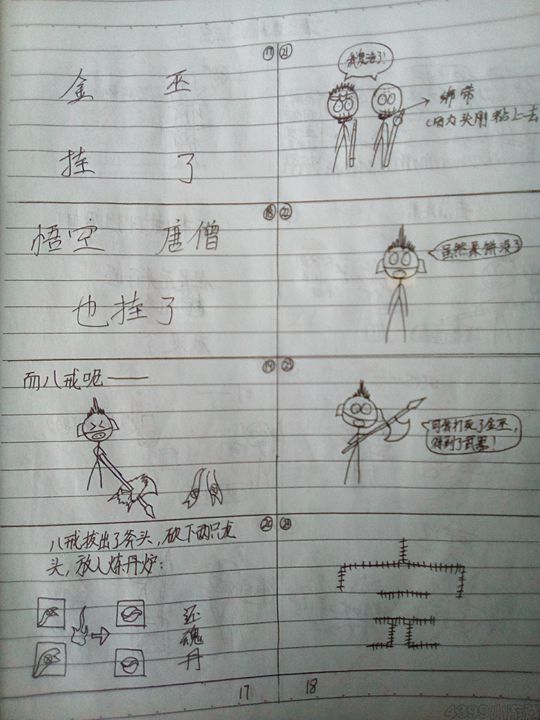 ⑰
金 巫
挂 了
⑱
悟空 唐僧
也挂了
⑲
而八戒呢——
⑳
八戒拔出了斧头,砍下两只
头,放入炼丹炉:
还
魂
丹
17
㉑
我复活了!
绑带
(因为头刚粘上去
㉒
虽然 没了
㉓
可我打死了金巫,
得到了武器!
㉔
完
18
4399小游戏